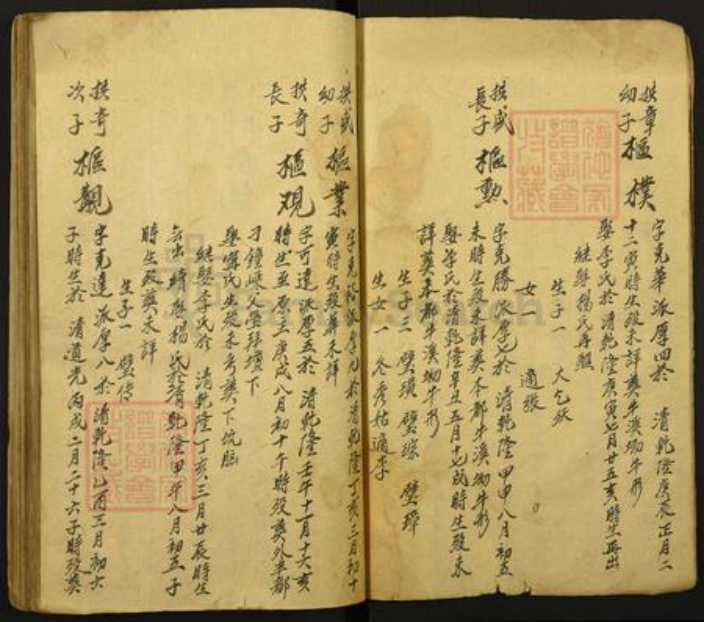 拱章
幼子 樞樸
字克華派厚四於 清乾隆庚辰正月二
十二寅時生殁未詳葬牛溪坳牛形
娶李氏於清乾隆庚寅七月廿五亥時生再出
継娶楊氏再醮
生子一 大乞 殀
女一 適張
拱盛
長子 樞勲
字克勝派厚七於 清乾隆甲申八月初五
未時生殁未詳葬本都牛溪坳牛形
娶李氏於清乾隆辛丑五月十七戌時生殁未
詳葬本都牛溪坳牛形
生子三 璧璜 璧琮 璧璋
生女一 冬秀姑適李
拱盛
幼子 樞業
字克 派厚九於清乾隆丁亥三月初十
寅時生殁葬未詳
拱奇
長子 樞观
字可達派厚五於 清乾隆壬午十一月十六亥
時生至 庚戌八月初十午時殁葬外半都
刁鐘 父塋拜壇下
娶寧氏生殁未考葬下坑
継娶李氏於 清乾隆丁亥三月廿辰時生
去出 娶楊氏於清乾隆甲午八月初五子
時生殁葬未詳
生子一 璧传
拱奇
次子 樞觀
字克達派厚八於清乾隆乙酉三月初六
子時生於 清道光丙戌二月二十六子時殁葬